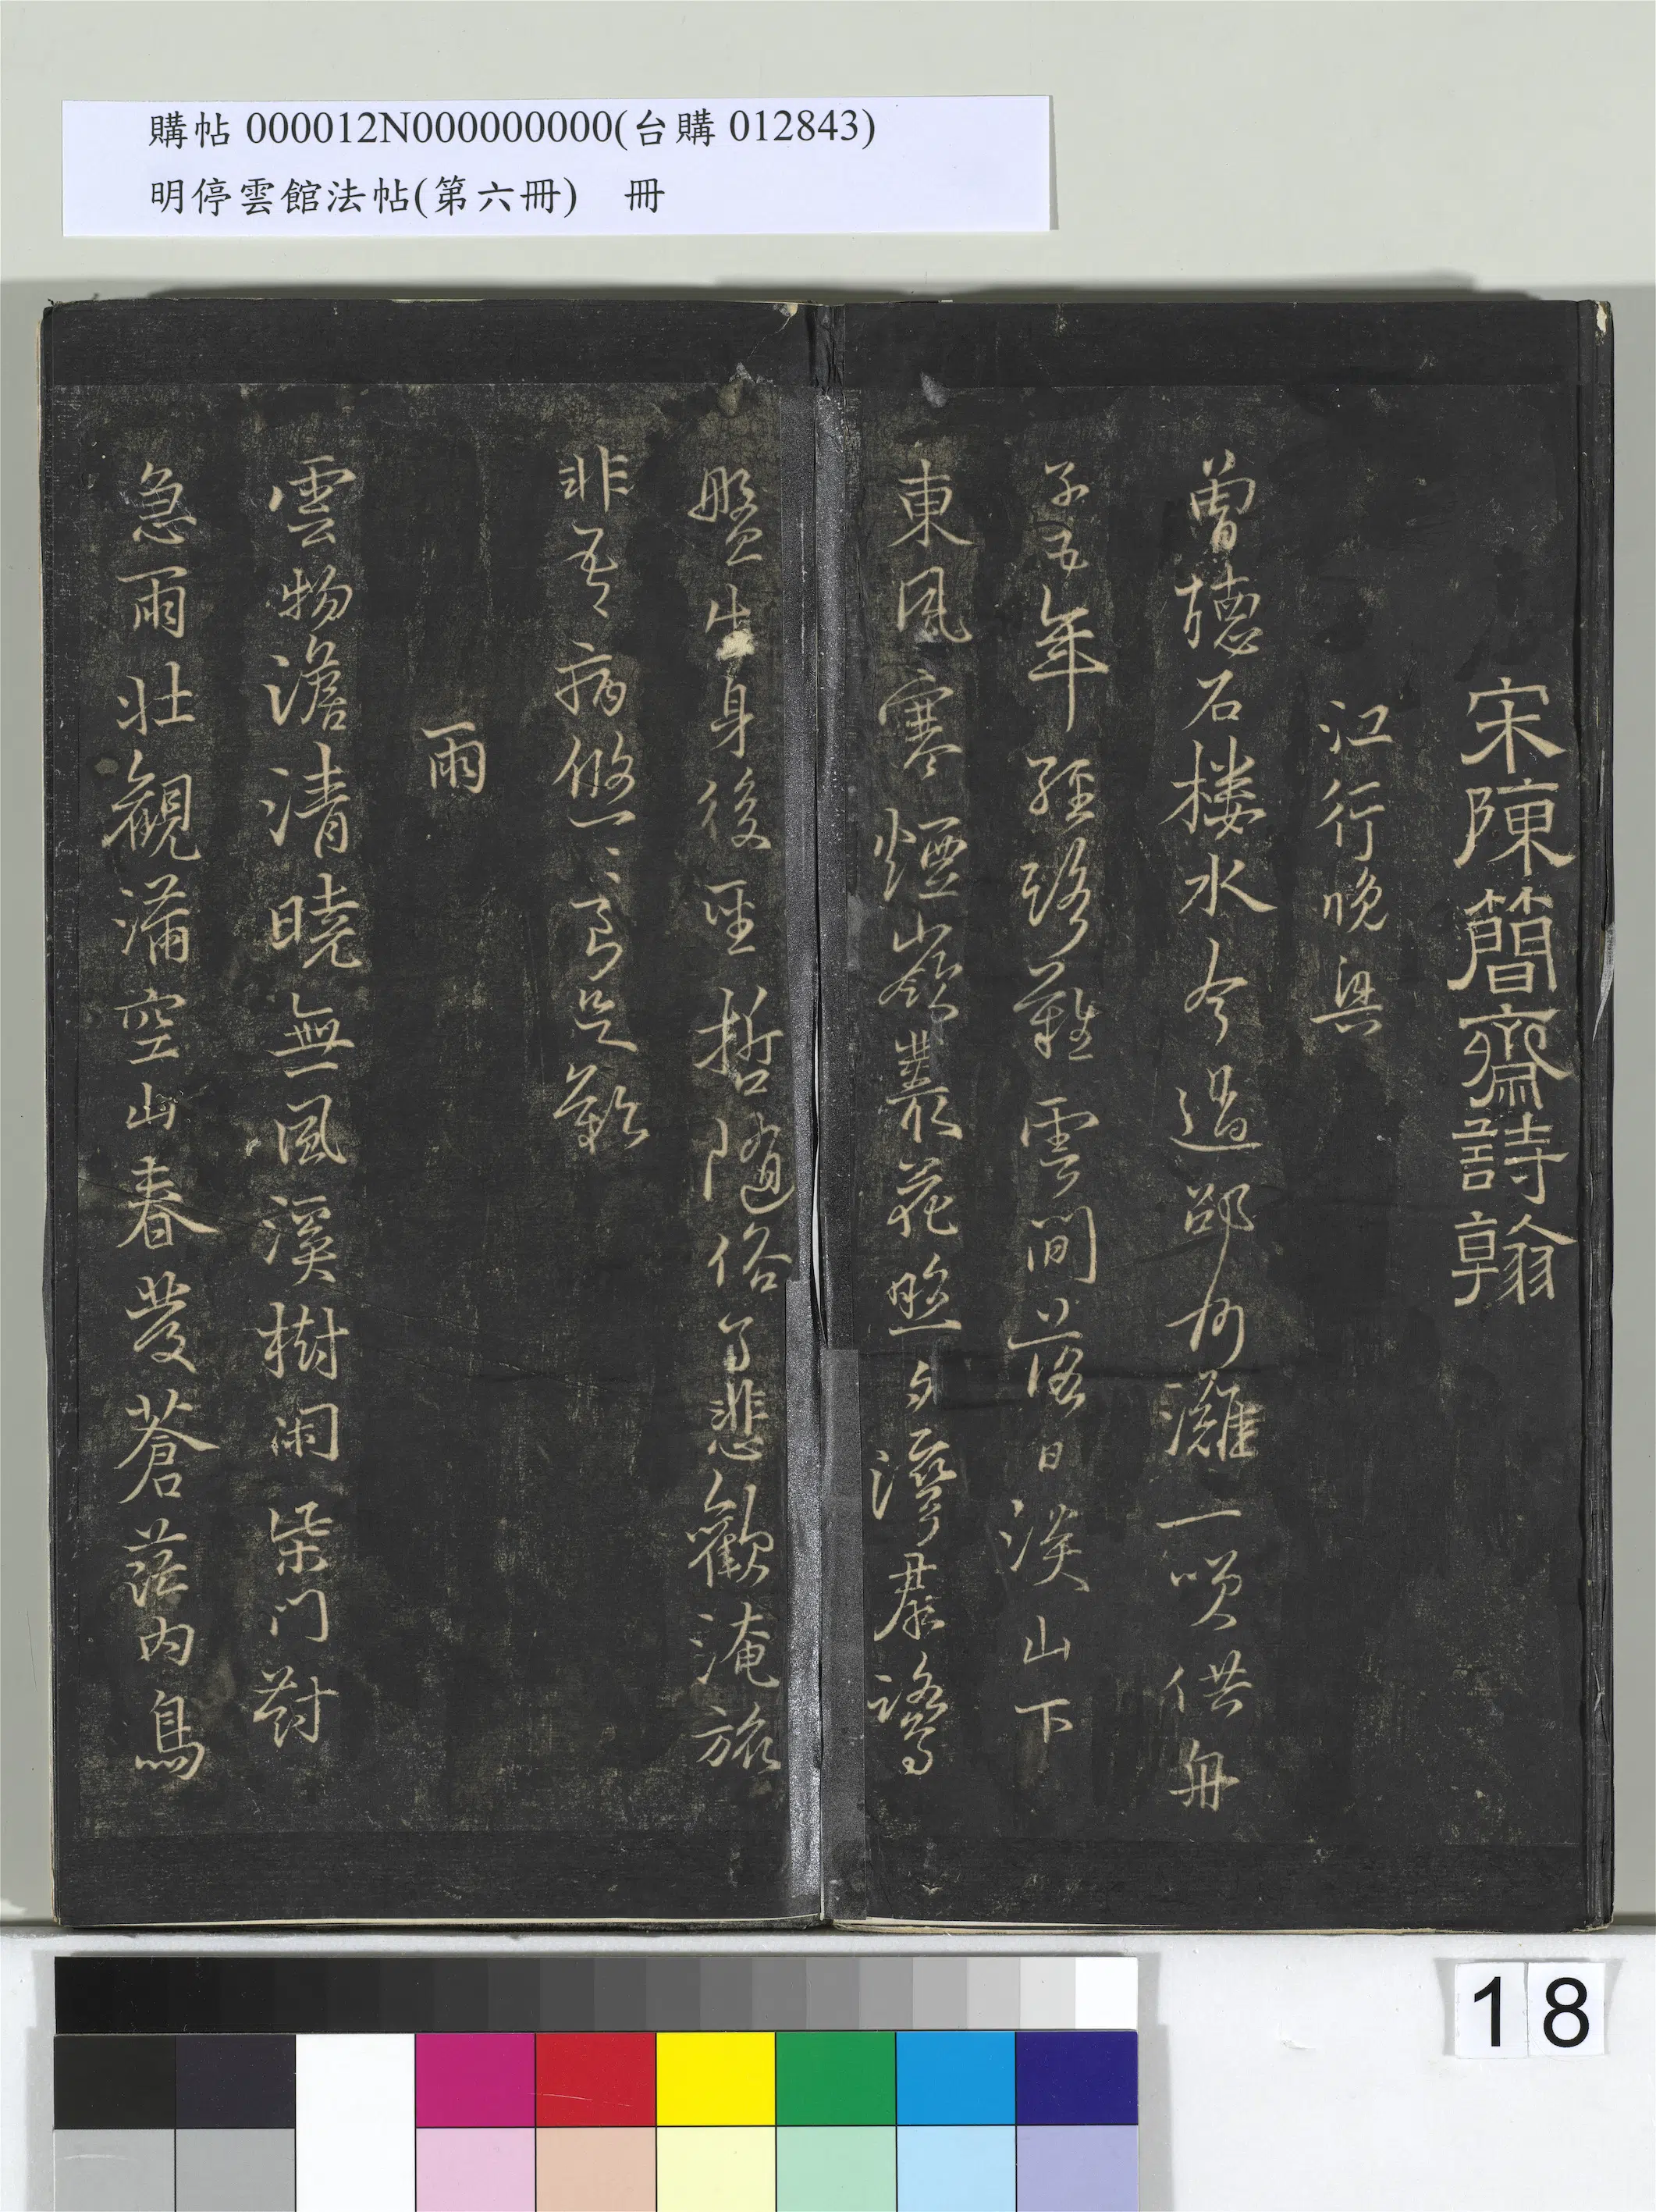 購帖 000012N000000000(台購 012843)
明停雲館法帖(第六冊) 冊
宋陳簡齋詩翰
江行晚興
曾聽石樓水今過邵州灘一笑供舟
子五年經路難雲間落日淡山下
東風寒煙嶺叢花照夕灣羣鷺
盤生身後聖哲隨俗了悲歡淹旅
非吾病悠〻良足歎
雨
雲物澹清曉無風溪樹閑柴門對
急雨壯觀滿空山春發蒼茫內鳥
18